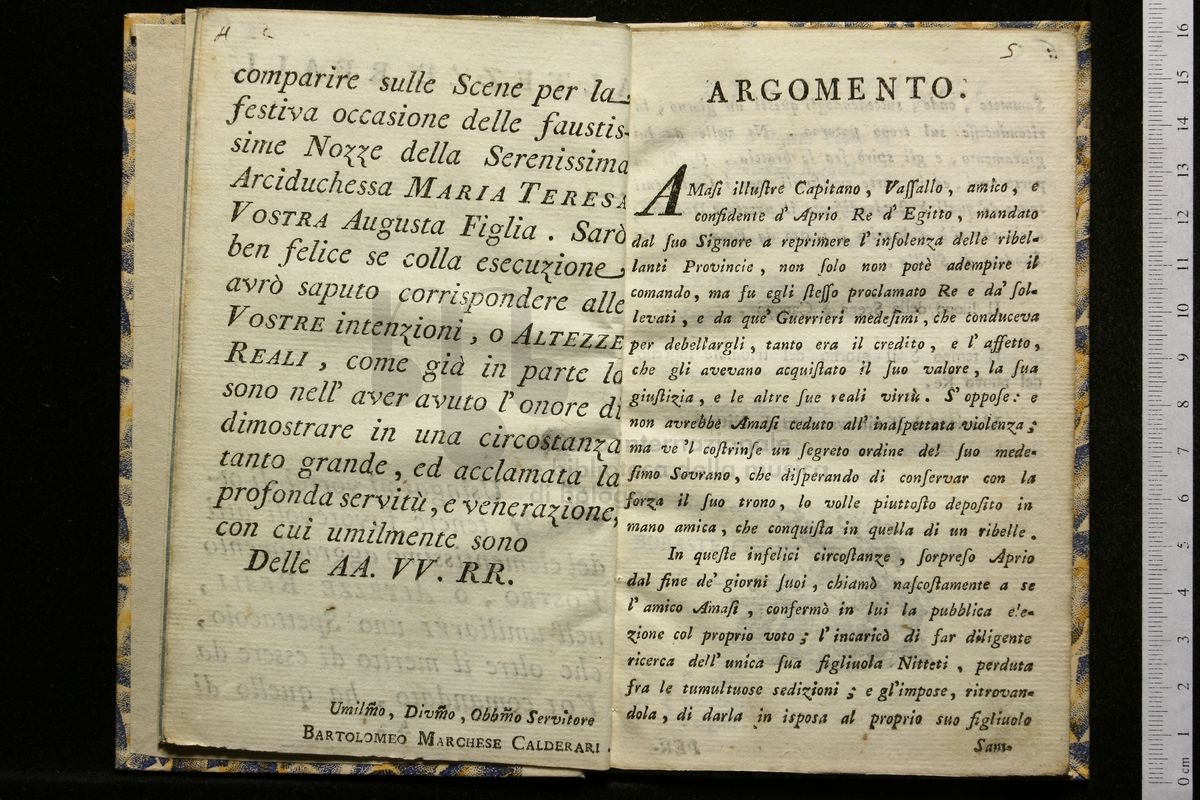 4
comparire sulle Scene per la
festiva occasione delle faustis-
sime Nozze della Serenissima
Arciduchessa MARIA TERESA
VOSTRA Augusta Figlia . Sarò
ben felice se colla esecuzione,
avrò saputo corrispondere alle
VOSTRE intenzioni , o ALTEZZE
REALI , come già in parte lo
sono nell' aver avuto l'onore di
dimostrare in una circostanza
tanto grande , ed acclamata la
profonda servitù , e venerazione,
con cui umìlmente sono
Delle AA. VV. RR.
Umilm̃o , Divm̃o , Obbm̃o Servitore
BARTOLOMEO MARCHESE CALDERARI .
5
ARGOMENTO.
AMaſi illuſtre Capitano , Vaſſallo , amico , e
confidente d' Aprio Re d' Egitto , mandato
dal ſuo Signore a reprimere l' inſolenza delle ribel-
lanti Provincie , non ſolo non potè adempire il
comando , ma fu egli ſteſſo proclamato Re e da' ſol-
levati , e da que' Guerrieri medeſimi , che conduceva
per debellargli , tanto era il credito , e l' affetto ,
che gli avevano acquiſtato il ſuo valore , la ſua
giuſtizia , e le altre ſue reali virtù . S' oppoſe : e
non avrebbe Amaſi ceduto all' inaſpettata violenza ;
ma ve 'l coſtrinſe un ſegreto ordine del ſuo mede-
ſimo Sovrano , che diſperando di conſervar con la
forza il ſuo trono , lo volle piuttoſto depoſito in
mano amica , che conquiſta in quella di un ribelle .
In queſte infelici circoſtanze , ſorpreſo Aprio
dal fine de' giorni ſuoi , chiamò naſcoſtamente a se
l' amico Amaſi , confermò in lui la pubblica ele-
zione col proprio voto ; l' incaricò di far diligente
ricerca dell' unica ſua figliuola Nitteti , perduta
fra le tumultuose sedizioni ; e gl' impose , ritrovan-
dola , di darla in isposa al proprio suo figliuolo
Sam-